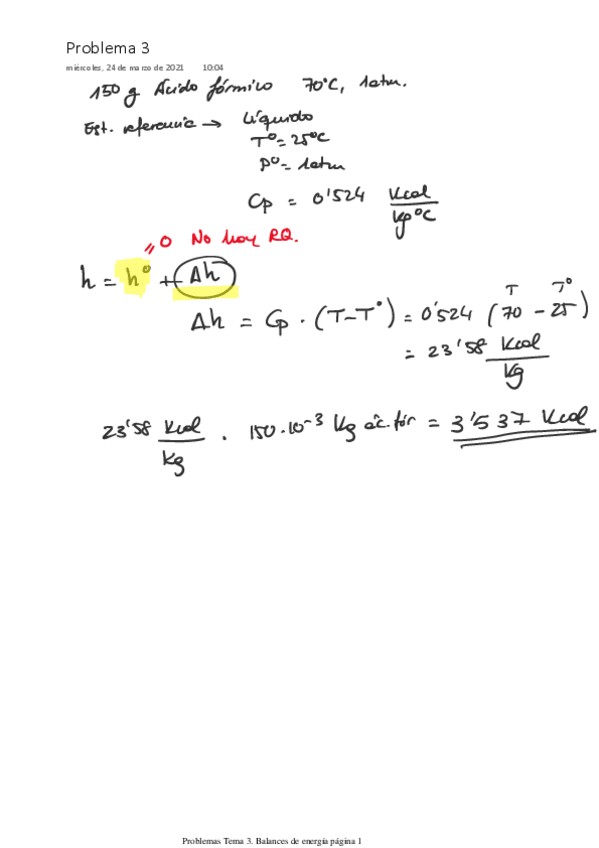 Problema 3
miércoles, 24 de marzo de 2021 10:04
150 g Ácido fórmico 70°C, 1atm.
Est. referencia → Líquido
T° = 25°C
P° = 1atm
Cp = 0'524 Kcal/kg°C
= 0 No hay RQ.
h = h° + Δh
Δh = Cp · (T - T°) = 0'524 (70 - 25)
T T°
= 23'58 Kcal/Kg
23'58 Kcal/Kg · 150·10⁻³ Kg ác. fór = 3'537 Kcal
Problemas Tema 3. Balances de energía página 1